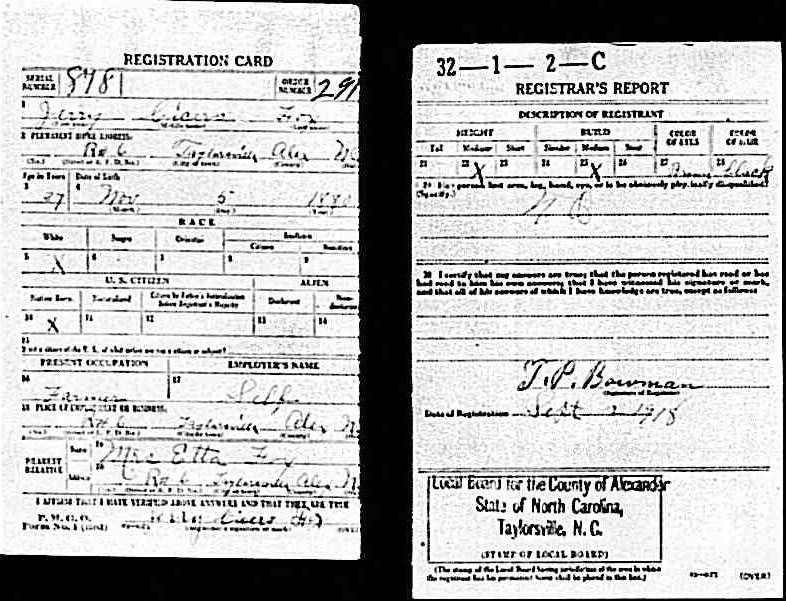 REGISTRATION CARD
SERIAL NUMBER 878 ORDER NUMBER 291
1 Jerry Cicero Fox
2 PERMANENT HOME ADDRESS:
Taylorsville Alex N C
Age in Years Date of Birth
3 37 4 Nov 5
(Month) (Day) (Year)
RACE
White Negro Oriental Indian
Citizen
5 X 6 7 8 9
U. S. CITIZEN ALIEN
Native Born Naturalized Citizen by Father's Naturalization Before Registrant's Majority Declarant Non-declarant
10 X 11 12 13 14
15
PRESENT OCCUPATION EMPLOYER'S NAME
16 Farmer 17 Self
18 PLACE OF EMPLOYMENT OR BUSINESS:
Taylorsville Alex N
NEAREST RELATIVE
Name 19 Mrs Etta Fox
Address 20 Taylorsville Alex N
I AFFIRM THAT I HAVE VERIFIED ABOVE ANSWERS AND THAT THEY ARE TRUE
P. M. G. O.
Form No. 1 (Red) Cicero Fox (OVER)
32—1—2—C
REGISTRAR'S REPORT
DESCRIPTION OF REGISTRANT
HEIGHT BUILD COLOR OF EYES COLOR OF HAIR
Tall Medium Short Slender Medium Stout
21 22 X 23 24 25 X 26 27 Brown 28 Black
29 Has person lost arm, leg, hand, eye, or is he obviously physically disqualified?
(Specify.)
No
30 I certify that my answers are true; that the person registered has read or has
had read to him his own answers; that I have witnessed his signature or mark,
and that all of his answers of which I have knowledge are true, except as follows:
T. P. Bowman
(Signature of Registrar)
Date of Registration Sept 1918
Local Board for the County of Alexander
State of North Carolina,
Taylorsville, N. C.
(STAMP OF LOCAL BOARD)
(The stamp of the Local Board having jurisdiction of the area in which
the registrant has his permanent home shall be placed in this box.)
(OVER)